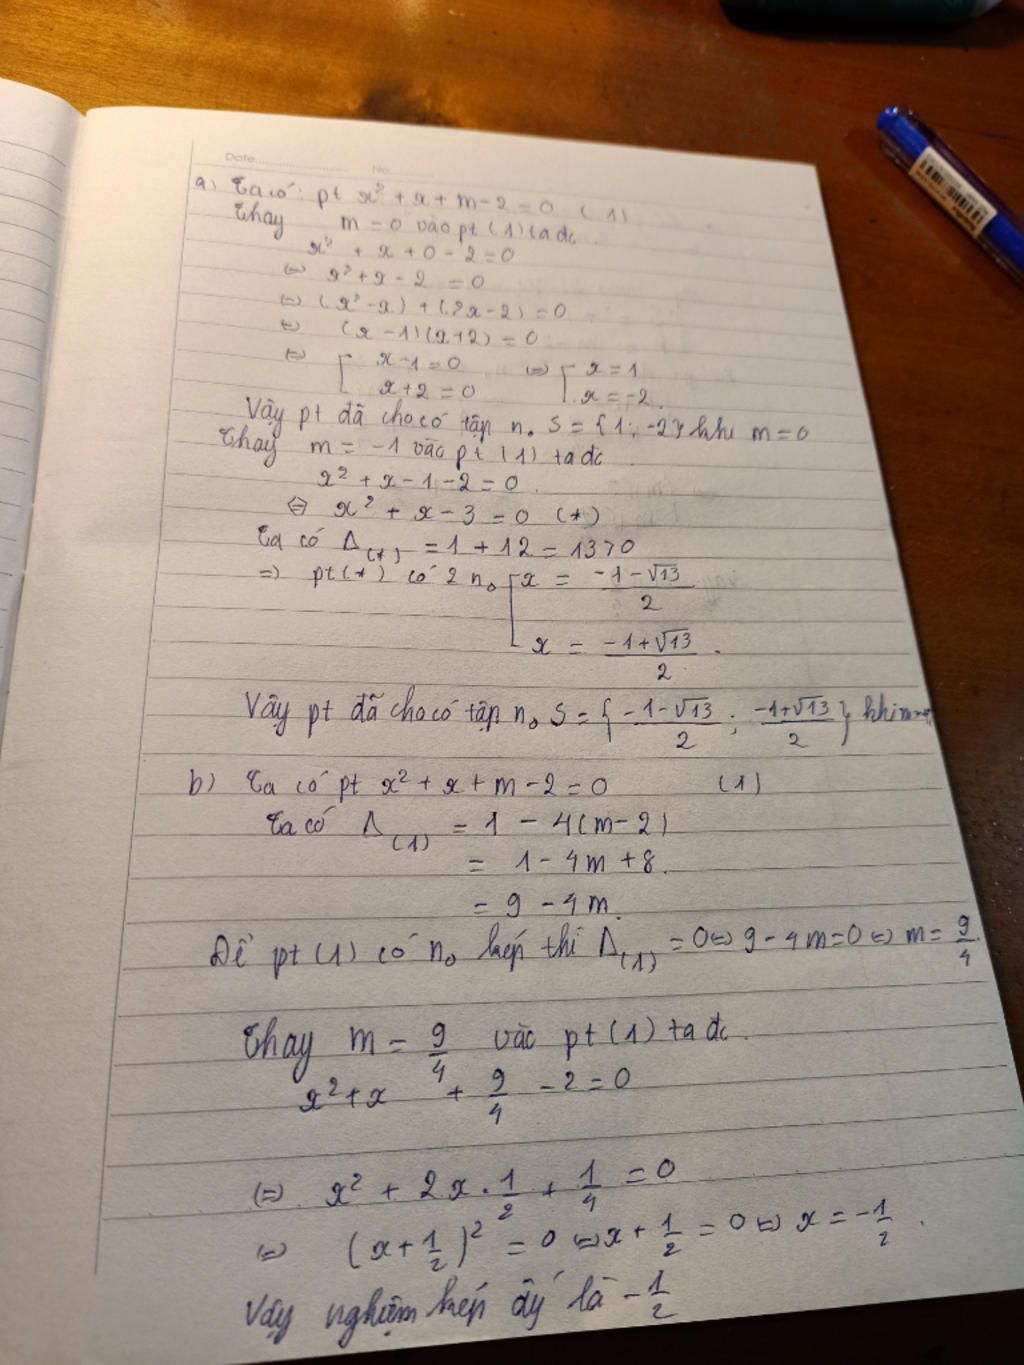 Date.................... No..........
a) Ta có: pt x² + x + m - 2 = 0 (1)
Thay m = 0 vào pt (1) ta đc
x² + x + 0 - 2 = 0
⇔ x² + x - 2 = 0
⇔ (x² - x) + (2x - 2) = 0
⇔ (x - 1)(x + 2) = 0
⇔ [ x - 1 = 0 ⇔ [ x = 1
x + 2 = 0 x = -2.
Vậy pt đã cho có tập n₀ S = {1; -2} khi m = 0
Thay m = -1 vào pt (1) ta đc
x² + x - 1 - 2 = 0.
⇔ x² + x - 3 = 0 (*)
Ta có Δ(*) = 1 + 12 = 13 > 0
⇒ pt(*) có 2 n₀ [ x = (-1 - √13)/2
x = (-1 + √13)/2.
Vậy pt đã cho có tập n₀ S = { (-1 - √13)/2 ; (-1 + √13)/2 } khi
b) Ta có pt x² + x + m - 2 = 0 (1)
Ta có Δ(1) = 1 - 4(m - 2)
= 1 - 4m + 8.
= 9 - 4m.
Để pt (1) có n₀ kép thì Δ(1) = 0 ⇔ 9 - 4m = 0 ⇔ m = 9/4.
Thay m = 9/4 vào pt (1) ta đc.
x² + x + 9/4 - 2 = 0
⇔ x² + 2x . 1/2 + 1/4 = 0
⇔ (x + 1/2)² = 0 ⇔ x + 1/2 = 0 ⇔ x = -1/2.
Vậy nghiệm kép đấy là -1/2